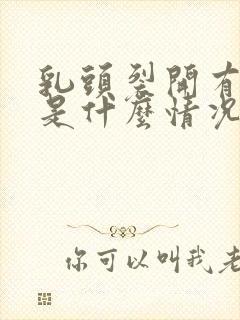 乳頭裂開有
是什麼情況
你可以叫我老